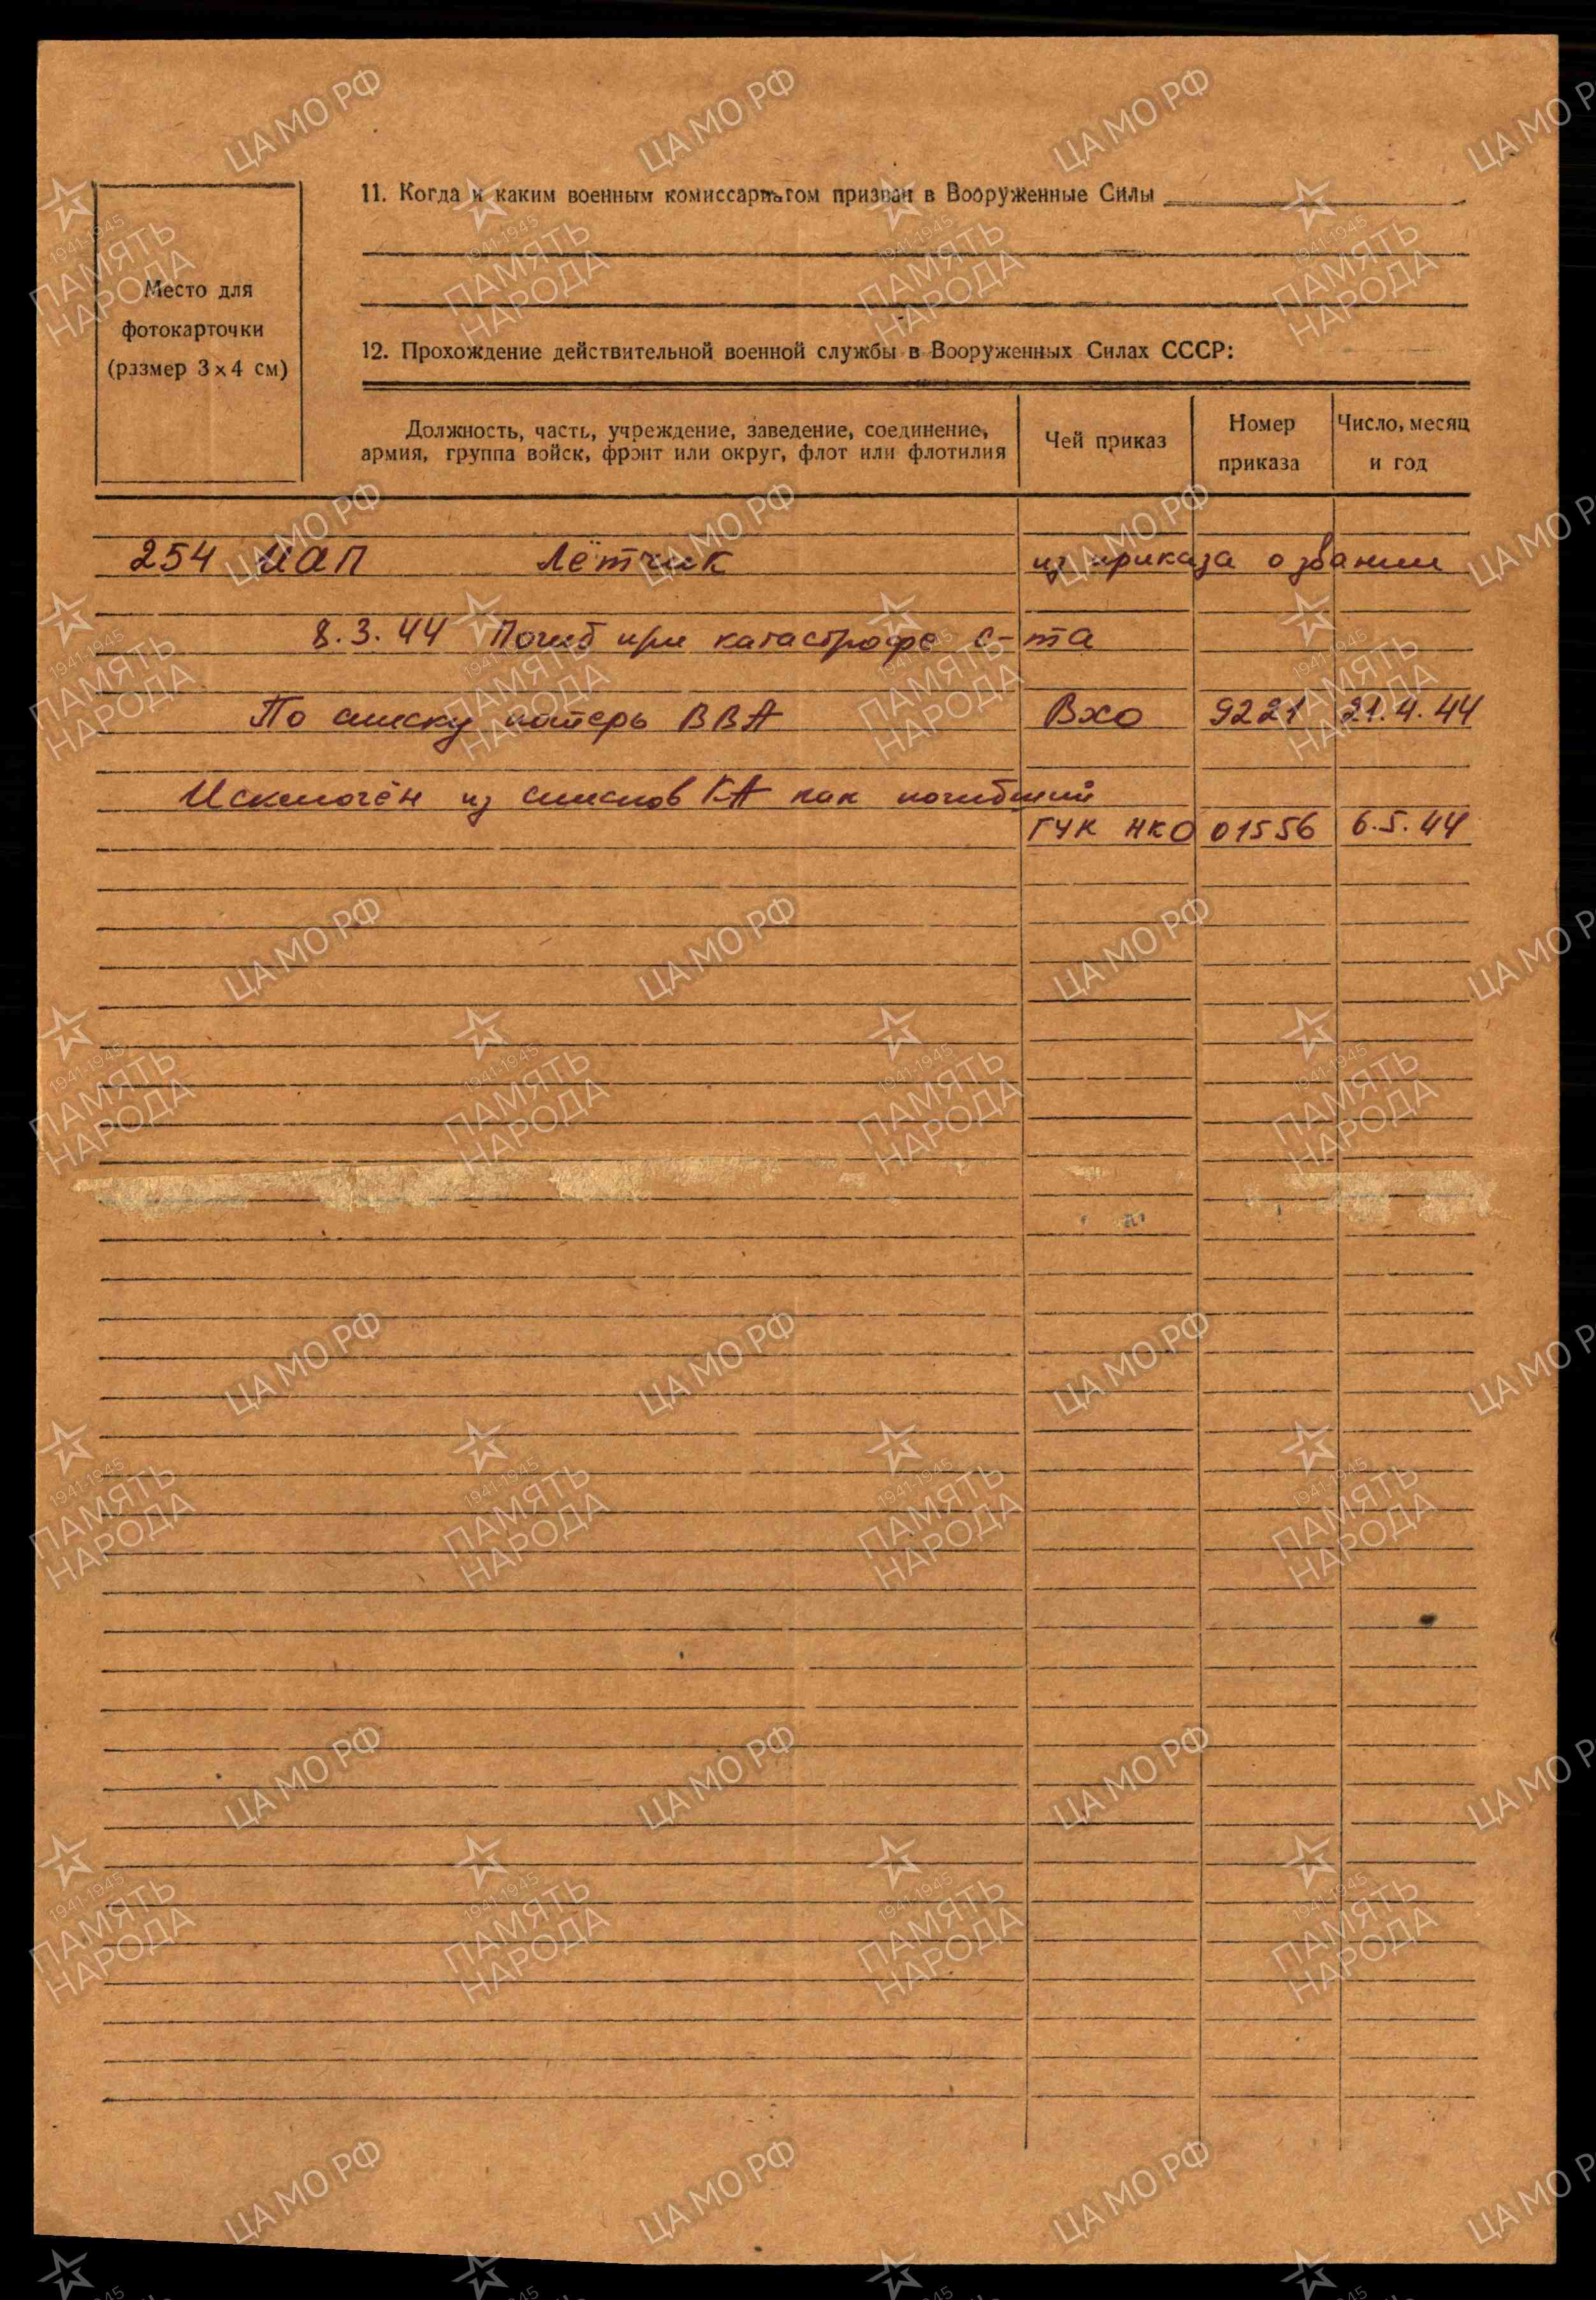 11. Когда и каким военным комиссариатом призван в Вооруженные Силы
Место для
фотокарточки
(размер 3×4 см)
12. Прохождение действительной военной службы в Вооруженных Силах СССР:
Должность, часть, учреждение, заведение, соединение,
армия, группа войск, фронт или округ, флот или флотилия
Чей приказ
Номер
приказа
Число, месяц
и год
254 ИАП Лётчик из приказа о звании
8.3.44 Погиб при катастрофе с-та
По списку потерь ВВА Вхо 9221 21.4.44
Исключён из списков КА как погибший
ГУК НКО 01556 6.5.44
ЦА МО РФ
1941-1945
ПАМЯТЬ
НАРОДА